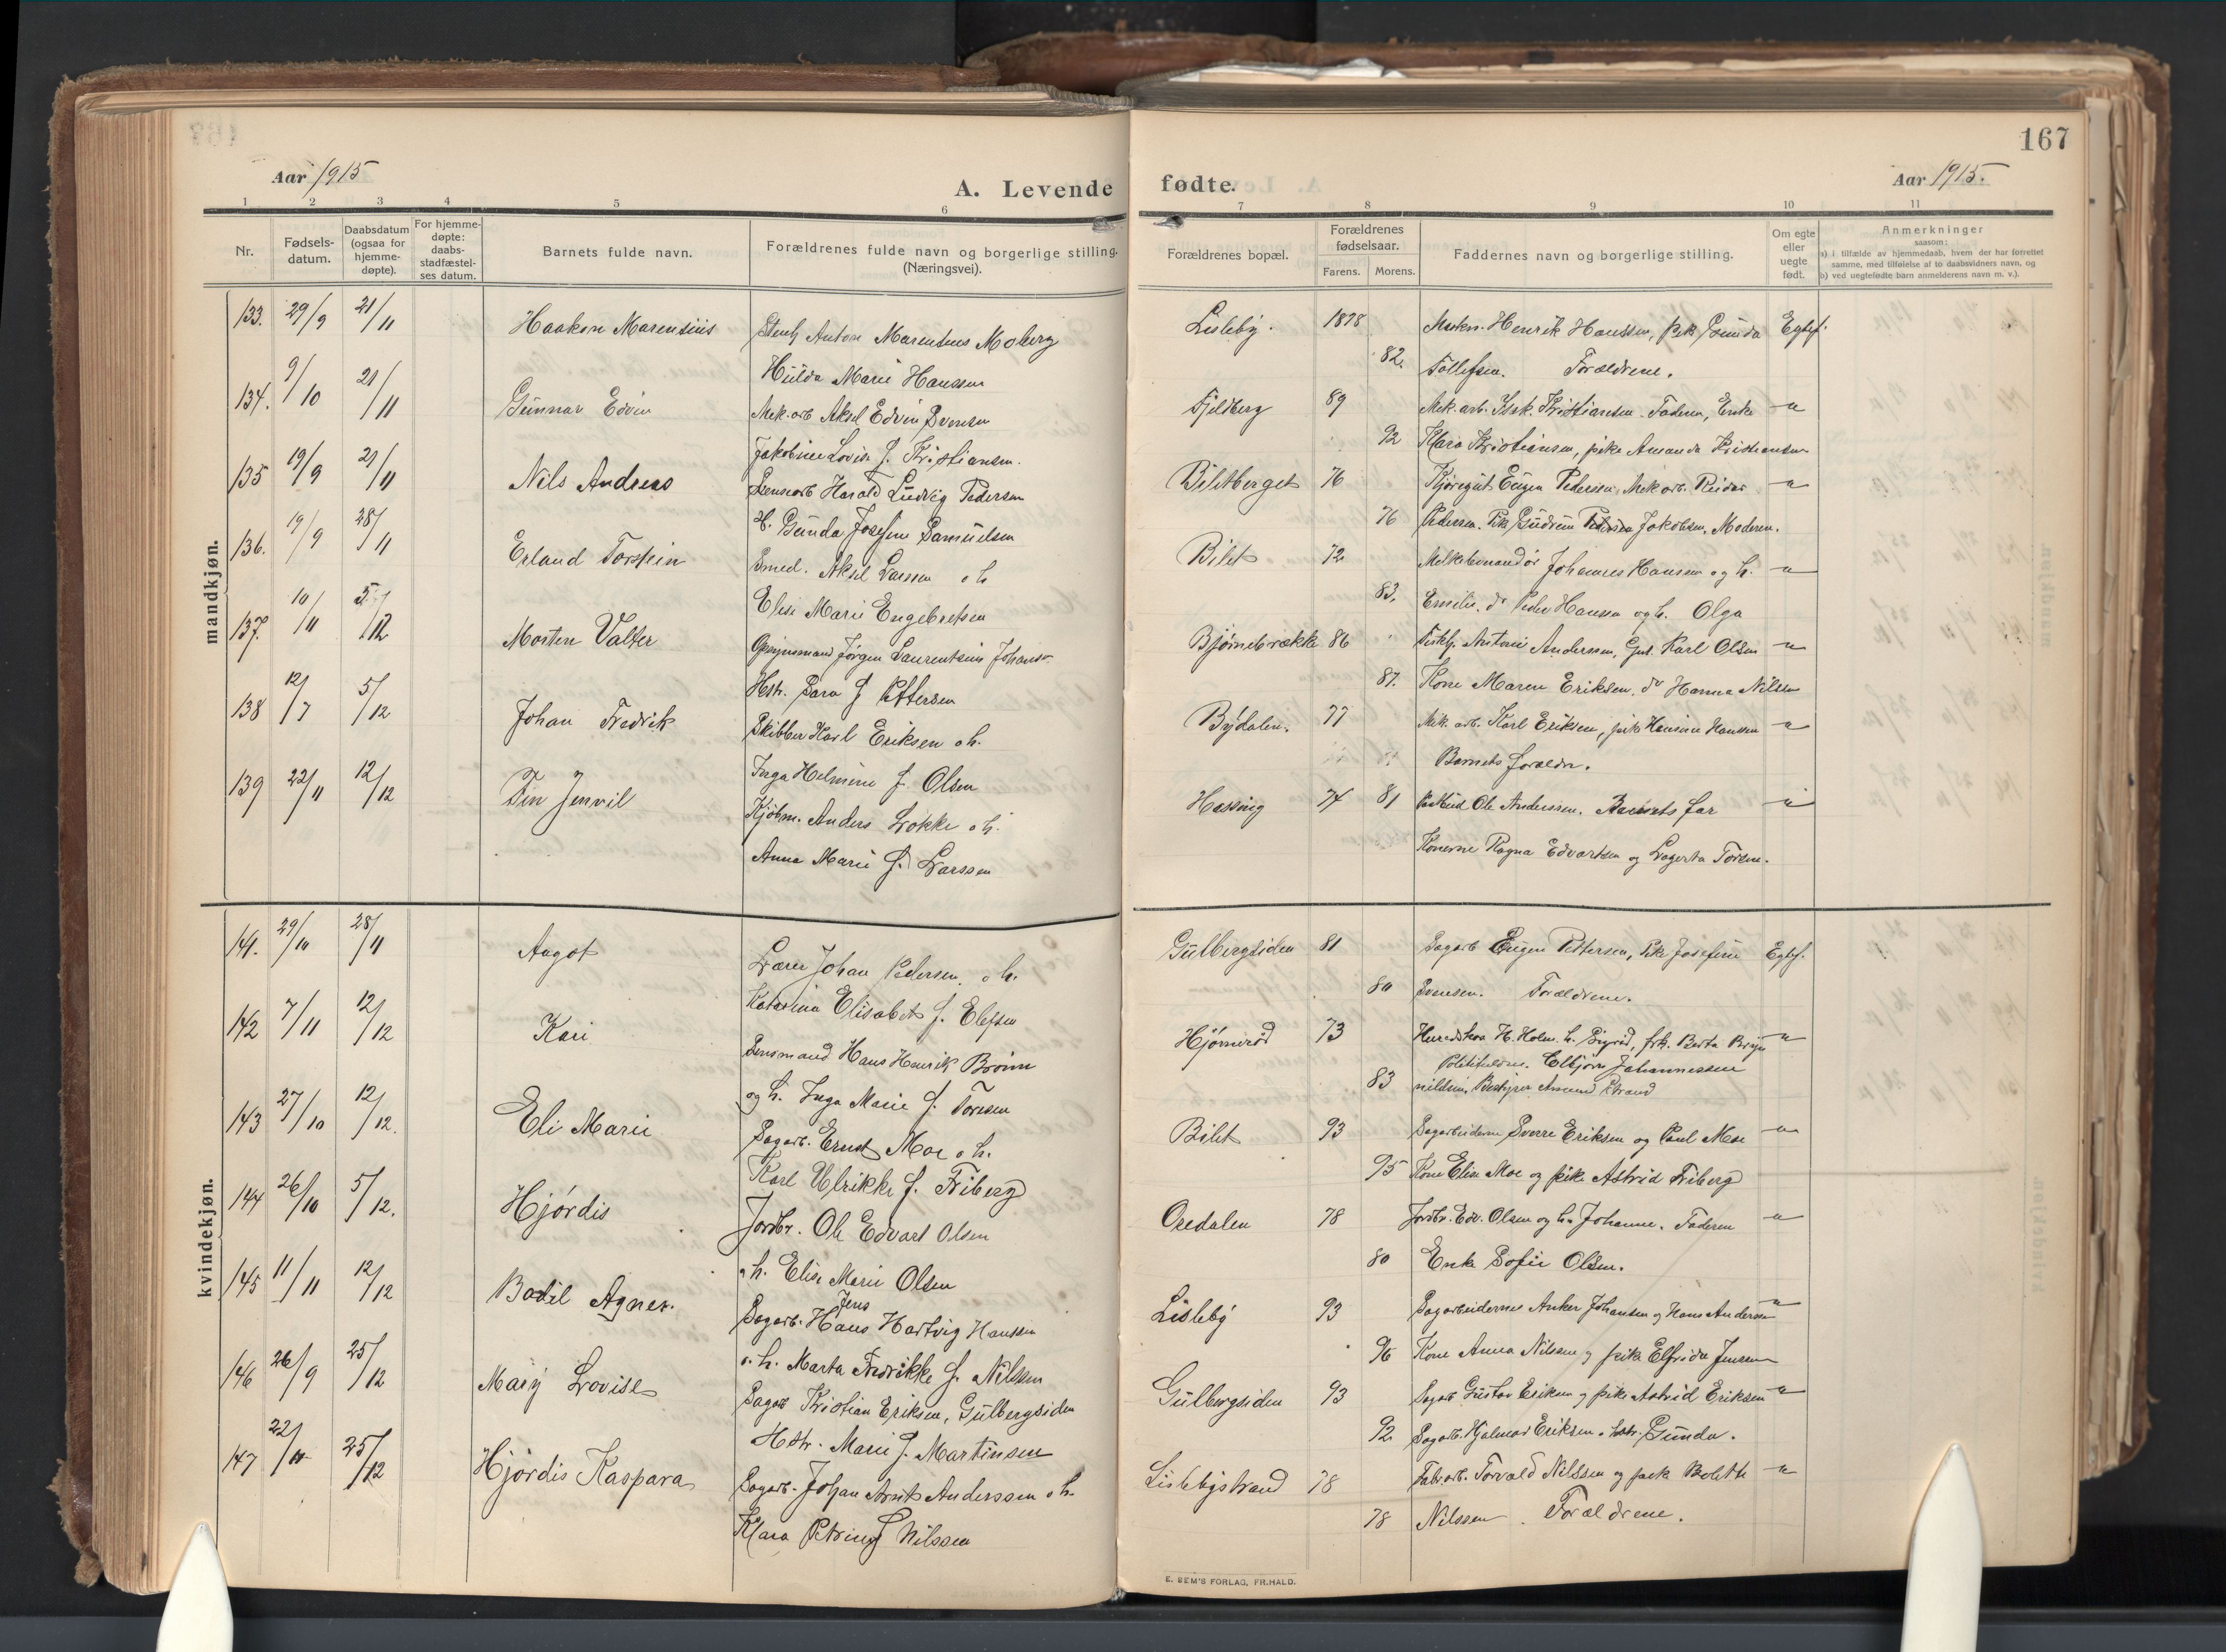 167
Aar 1915
A. Levende
fødte.
Aar 1915.
1 2 3 4 5 6
7 8 9 10 11
Nr.
Fødsels-
datum.
Daabsdatum
(ogsaa for
hjemme-
døpte).
For hjemme-
døpte:
daabs-
stadfæstel-
ses datum.
Barnets fulde navn.
Forældrenes fulde navn og borgerlige stilling.
(Næringsvei).
Forældrenes bopæl.
Forældrenes
fødselsaar.
Farens. Morens.
Faddernes navn og borgerlige stilling.
Om egte
eller
uegte
født.
Anmerkninger
saasom:
a) i tilfælde av hjemmedaab, hvem der har forrettet
samme, med tilføielse af to daabsvidners navn, og
b) ved uegtefødte barn anmelderens navn m. v.).
mandkjøn.
133. 29/9 21/11 Haakon Marensius Anton Marentius Moberg Lisleby. 1878 Henrik Hanssen, pik. Gunda Egtef.
Hulda Marie Hanssen 82. Tollefsen. Forældrene.
134. 9/10 21/11 Gunnar Edvin Mek. arb Aksel Edvin Svensen Fjeldberg 89 Mek. arb. Isak Kristiansen. Faderen, Enke -"-
Jakobine Lovise f. Kristiansen. 92 Klara Kristiansen, pike Amanda Kristiansen
135 19/9 21/11 Nils Andreas Harald Ludvig Pedersen Biletberget 76 Kjøregut Eugen Pedersen, Mek arb. Reidar -"-
H. Gunda Josefine Samuelsen 76 Pedersen. Pik. Gudrun Jakobsen. Moderen.
136. 19/9 28/11 Erland Torstein Smed. Aksel Larssen o h Bilet 72 Johannes Hanssen og h. -"-
Elise Marie Engebretsen 83. Emilie. do Peder Hansen og h. Olga
137. 10/11 5/12 Morten Valter Jørgen Laurentsius Johans. Bjørnebrække 86 Anton Anderssen, Gut. Karl Olsen -"-
Hstr. Sara f Pettersen 87. Kone Maren Eriksen. do Hanna Nilsen
138 12/7 5/12 Johan Fredrik Skibber Karl Eriksen o h. Bydalen. 77 Mek. arb. Karl Eriksen, pike Hansine Hanssen -"-
Inga Helmine f Olsen Barnets foræld.
139 22/11 12/12 Fin Jenvil Kjøbm. Anders Løkke o h. Hassing 74 81 Ole Anderssen. Barnets far -"-
Anna Marie f. Larssen Konerne Ragna Edvartsen og Lagerta Torsne.
kvindekjøn.
141. 29/10 28/11 Aagot Lærer Johan Pedersen. o h. Gulbergsiden 81 Sagarb Eugen Pettersen, Pike Josefine Egtef.
Katarina Elisabet f. Elefsen 80 Svensen. Forældrene.
142 7/11 12/12 Kari Lensmand Hans Henrik Brønn Hjørnerød 73 H. Holm. h. Sigrid, frk. Berta -"-
og h. Inga Marie f. Toresen 83 Johannessen
Bestyrer Amund Strand
143 27/10 12/12. Eli Marie Sagarb. Ernst Moe o h. Bilet 93 Sagarbeiderne Sverre Eriksen og Paul Moe -"-
Karl Ulrikke f. Friberg 95 Kone Elise Moe og pike Astrid Friberg
144 26/10 5/12. Hjørdis Jordbr. Ole Edvart Olsen Oredalen 78 Jordbr. Edv. Olsen og h. Johanne. Faderen -"-
o h. Elise Marie Olsen 80 Enke Sofie Olsen.
145 11/11 12/12 Bodil Agnes. Jens
Sagarb. Hans Hartvig Hanssen Lisleby 93 Sagarbeiderne Anker Johansen og Hans Andersen -"-
o. h. Marta Fredrikke f. Nilssen 96 Kone Anna Nilsen og pike Elfrida Jensen
146 26/9 25/12 Mary Lovise Sagarb Kristian Eriksen, Gulbergsiden Gulbergsiden 93 Sagarb Gustav Eriksen og pike Astrid Eriksen -"-
Hstr. Marie f. Martinsen 92 Sagarb. Hjalmar Eriksen. hstr. Gunda.
147 22/11 25/12 Hjørdis Kaspara Sagarb. Johan Anderssen o h. Lislebystrand 78 Fabr. arb. Torvald Nilssen og pike Bolette -"-
Klara Petrine f Nilssen 78 Nilssen. Forældrene.
E. SEM'S FORLAG, FR.HALD.